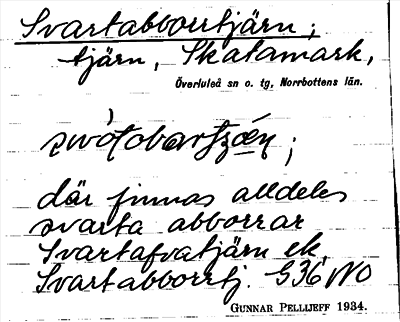 Svartabborrtjärn;
tjärn, Skatamark,
Överluleå sn o. tg, Norrbottens län.
där finnas alldeles
svarta abborrar
Svartafvatjärn ek
Svartabborrtj. G36 NO
GUNNAR PELLIJEFF 1934.